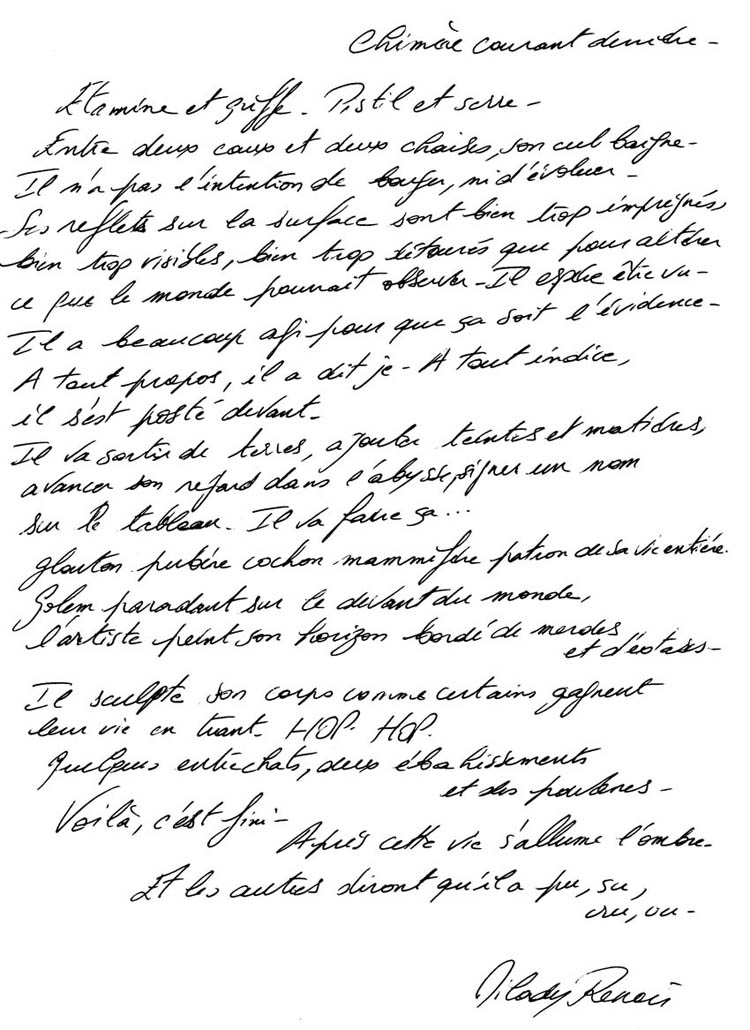 Chimère courant derrière -
Etamine et griffe - Pistil et serre -
Entre deux eaux et deux chaises, son cul baigne -
Il n'a pas l'intention de bouger, ni d'évoluer -
Ses reflets sur la surface sont bien trop imprégnés,
bien trop visibles, bien trop détourés que pour altérer
ce que le monde pourrait observer - Il espère être vu -
Il a beaucoup agi pour que ça soit l'évidence -
A tout propos, il a dit je - A tout indice,
il s'est posté devant -
Il va sortir de terres, ajouter teintes et matières,
avancer son regard dans l'abysse, signer un nom
sur le tableau - Il va faire ça...
glouton pubère cochon mammifère patron de sa vie entière.
Golem paradant sur le devant du monde,
l'artiste peint son horizon bordé de merdes
et d'extases -
Il sculpte son corps comme certains gagnent
leur vie en tuant - HOP - HOP.
Quelques entrechats, deux ébahissements
et des poubelles -
Voilà, c'est fini -
Après cette vie s'allume l'ombre -
Et les autres diront qu'il a pu, su,
cru, ou -
Milady Renoir